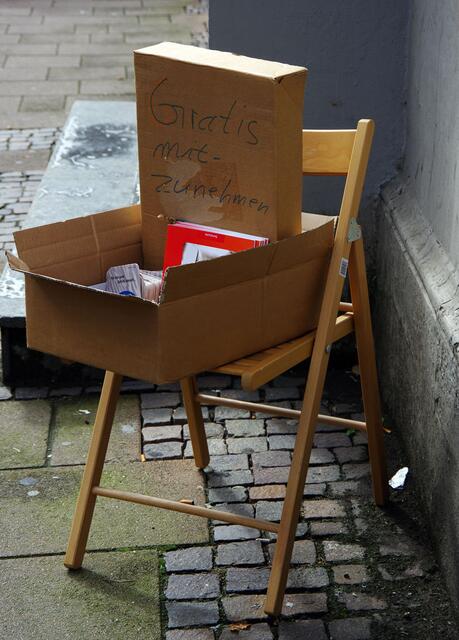 Gratis
mit-
zunehmen